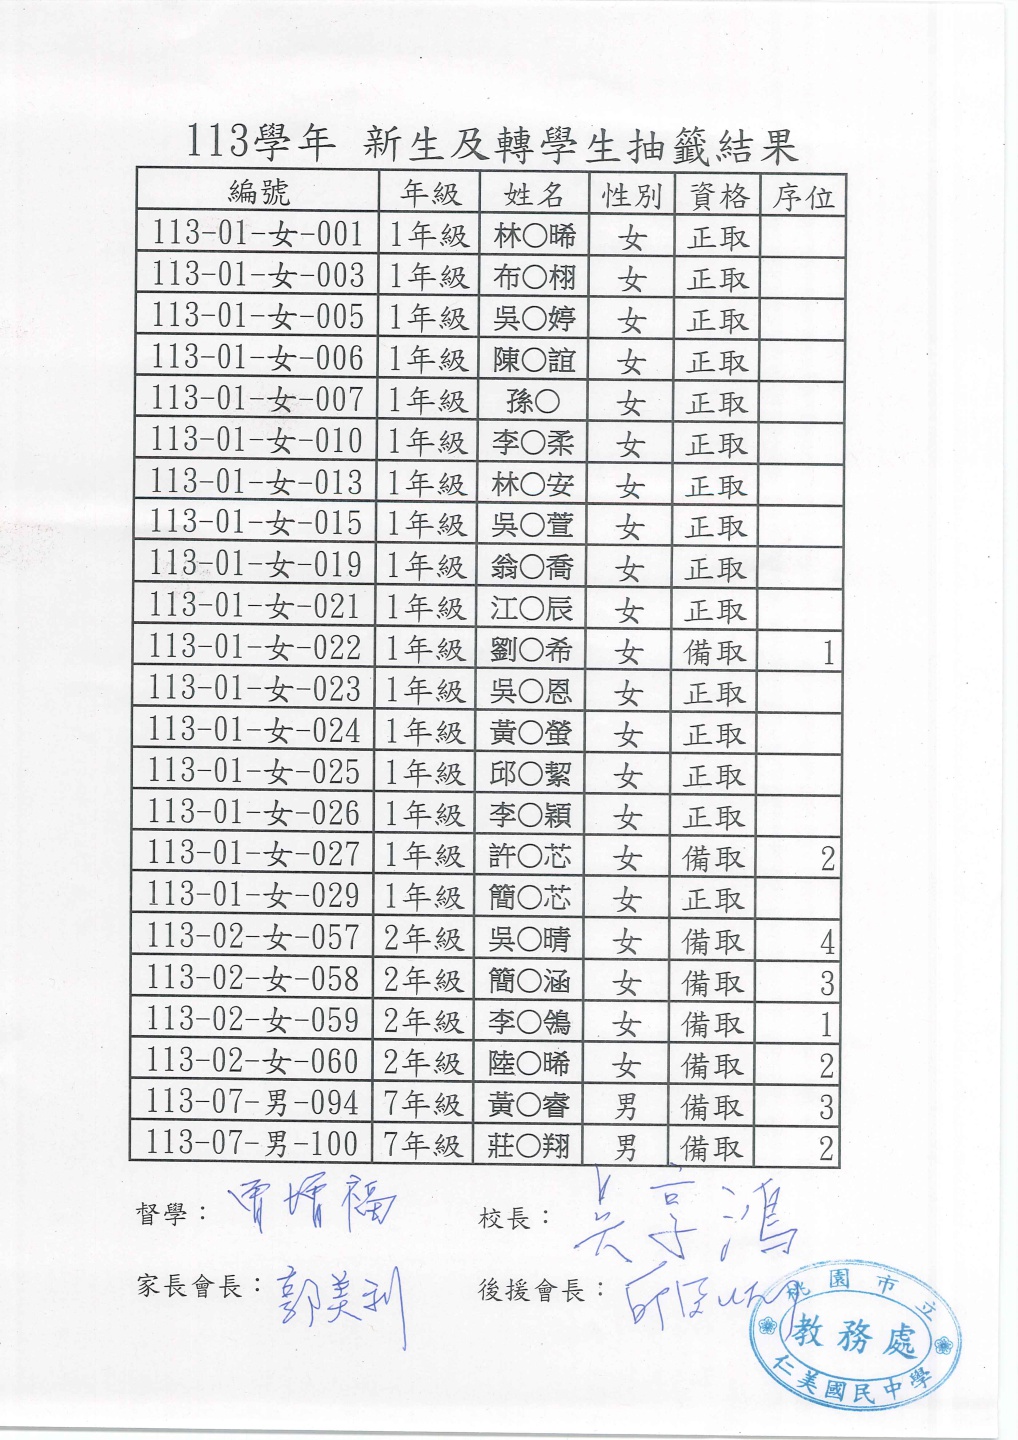 113學年 新生及轉學生抽籤結果
編號 年級 姓名 性別 資格 序位
113-01-女-001 1年級 林〇晞 女 正取
113-01-女-003 1年級 布〇栩 女 正取
113-01-女-005 1年級 吳〇婷 女 正取
113-01-女-006 1年級 陳〇誼 女 正取
113-01-女-007 1年級 孫〇 女 正取
113-01-女-010 1年級 李〇柔 女 正取
113-01-女-013 1年級 林〇安 女 正取
113-01-女-015 1年級 吳〇萱 女 正取
113-01-女-019 1年級 翁〇喬 女 正取
113-01-女-021 1年級 江〇辰 女 正取
113-01-女-022 1年級 劉〇希 女 備取 1
113-01-女-023 1年級 吳〇恩 女 正取
113-01-女-024 1年級 黃〇螢 女 正取
113-01-女-025 1年級 邱〇絜 女 正取
113-01-女-026 1年級 李〇穎 女 正取
113-01-女-027 1年級 許〇芯 女 備取 2
113-01-女-029 1年級 簡〇芯 女 正取
113-02-女-057 2年級 吳〇晴 女 備取 4
113-02-女-058 2年級 簡〇涵 女 備取 3
113-02-女-059 2年級 李〇鴒 女 備取 1
113-02-女-060 2年級 陸〇晞 女 備取 2
113-07-男-094 7年級 黃〇睿 男 備取 3
113-07-男-100 7年級 莊〇翔 男 備取 2
督學： 校長：吳享鴻
家長會長：郭美利 後援會長：
桃園市立
教務處
仁美國民中學